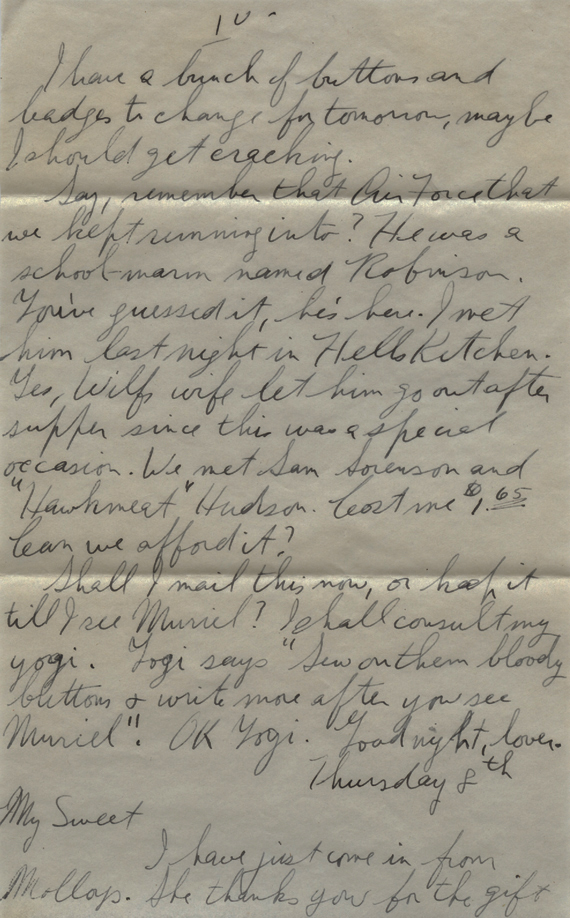 10-
I have a bunch of buttons and
badges to change for tomorrow, maybe
I should get cracking.
Say, remember that Air Force that
we kept running into? He was a
school-marm named Robinson.
You've guessed it, he's here. I met
him last night in Hells Kitchen.
Yes, Wilfs wife let him go out after
supper since this was a special
occasion. We met Sam Sorenson and
"Hawkmeat" Hudson. Cost me $1.65
Can we afford it?
Shall I mail this now, or keep it
till I see Muriel? I shall consult my
yogi. Yogi says "Sew on them bloody
buttons & write more after you see
Muriel". OK Yogi. Goodnight, lover.
Thursday 8th
My Sweet
I have just come in from
Mollops. She thanks you for the gift